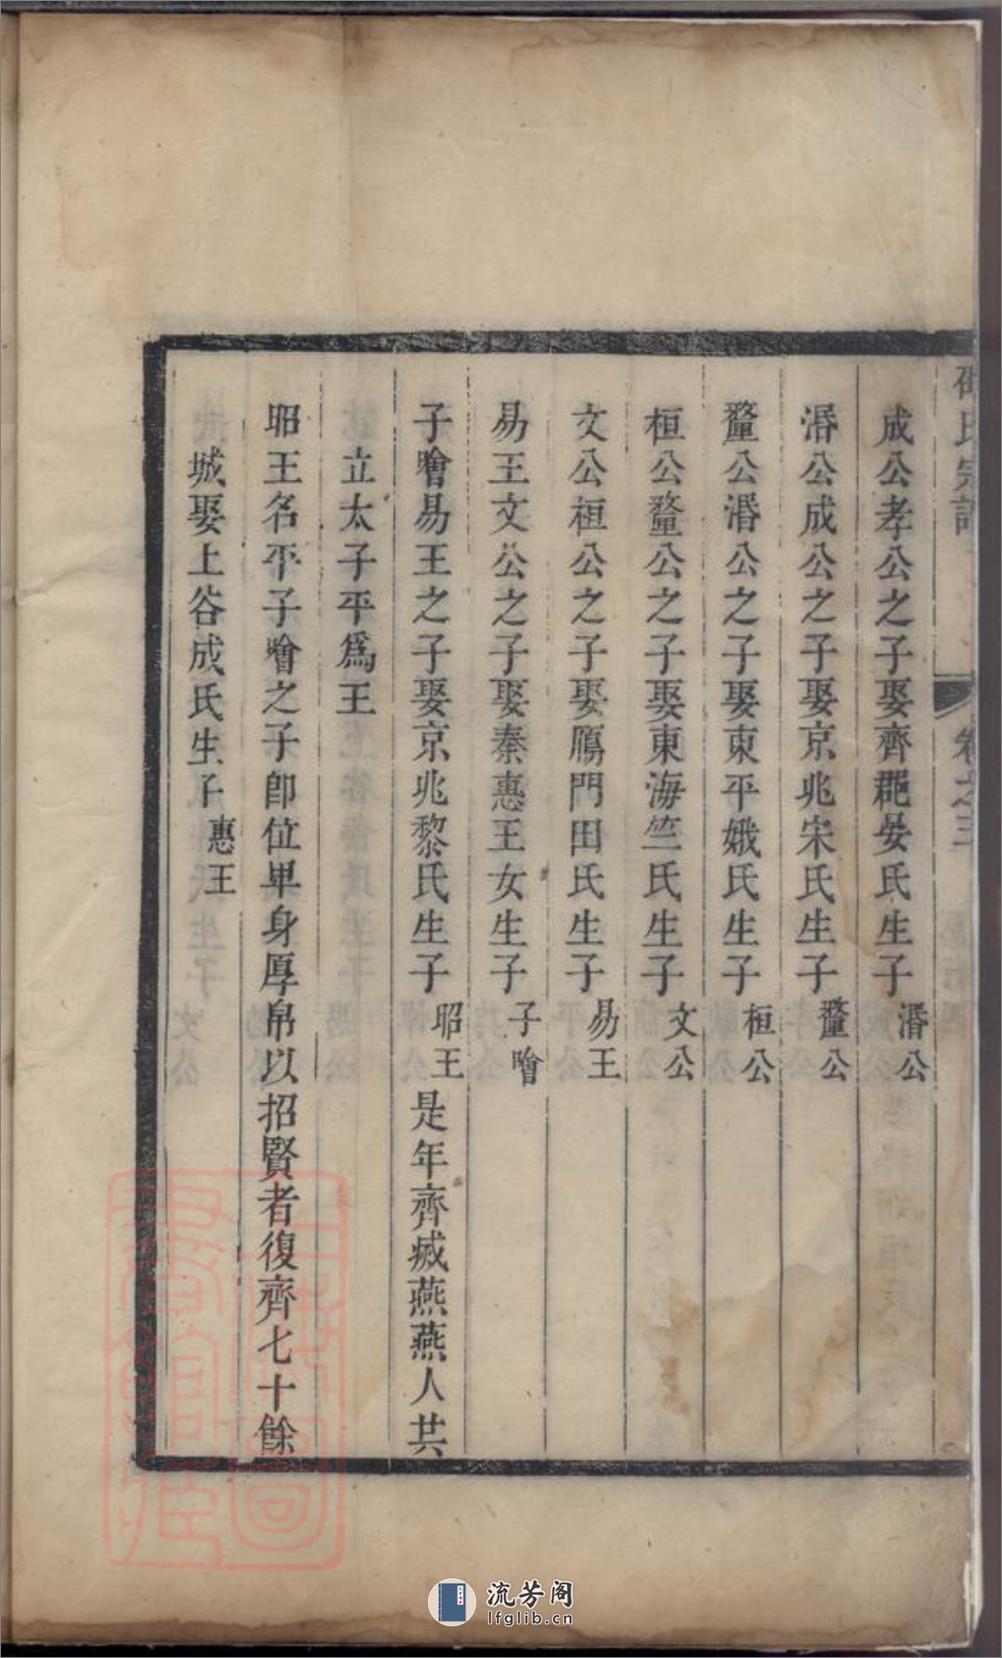 邵氏宗譜
卷之三
成公孝公之子娶齊郡晏氏生子湣公
湣公成公之子娶京兆宋氏生子釐公
釐公湣公之子娶東平娥氏生子桓公
桓公釐公之子娶東海竺氏生子文公
文公桓公之子娶鴈門田氏生子易王
易王文公之子娶秦惠王女生子子噲
子噲易王之子娶京兆黎氏生子昭王是年齊㓕燕燕人共
立太子平爲王
昭王名平子噲之子卽位卑身厚帛以招賢者復齊七十餘
城娶上谷成氏生子惠王
流芳阁
lfglib.cn